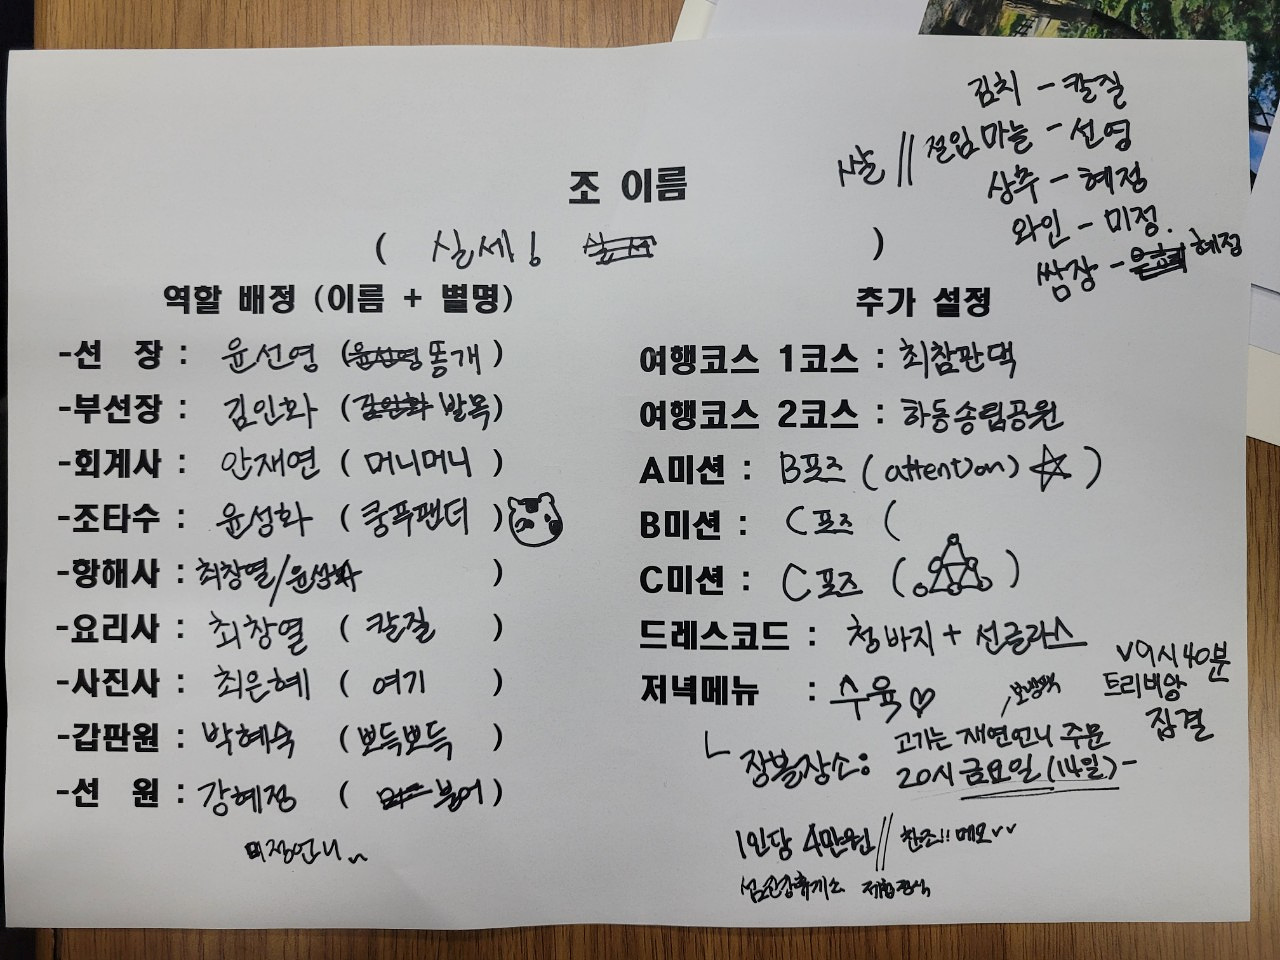 김치 - 칼질
쌀 // 절임마늘 - 선영
상추 - 혜정
와인 - 미정.
쌈장 - 혜정
조 이름
( 실세! )
역할 배정 (이름 + 별명)
-선 장 : 윤선영 (똥개)
-부선장 : 김인화 (발목)
-회계사 : 안재연 (머니머니)
-조타수 : 윤성화 (쿵푸팬더)
-항해사 : 최창열/윤성화 )
-요리사 : 최창열 (칼질)
-사진사 : 최은혜 (여기)
-갑판원 : 박혜숙 (뽀득뽀득)
-선 원 : 강혜정 (붕어)
미정언니
추가 설정
여행코스 1코스 : 최참판댁
여행코스 2코스 : 하동송림공원
A미션 : B포즈 (attention) ☆ )
B미션 : C포즈 (
C미션 : C포즈 ( )
드레스코드 : 청바지 + 선글라스
저녁메뉴 : 수육♡
V9시40분
트리비앙
집결
ㄴ장볼장소: 고기는 재연언니 주문
20시 금요일 (14일) -
1인당 4만원 // 찬조!! 메모vv
섬진강휴게소